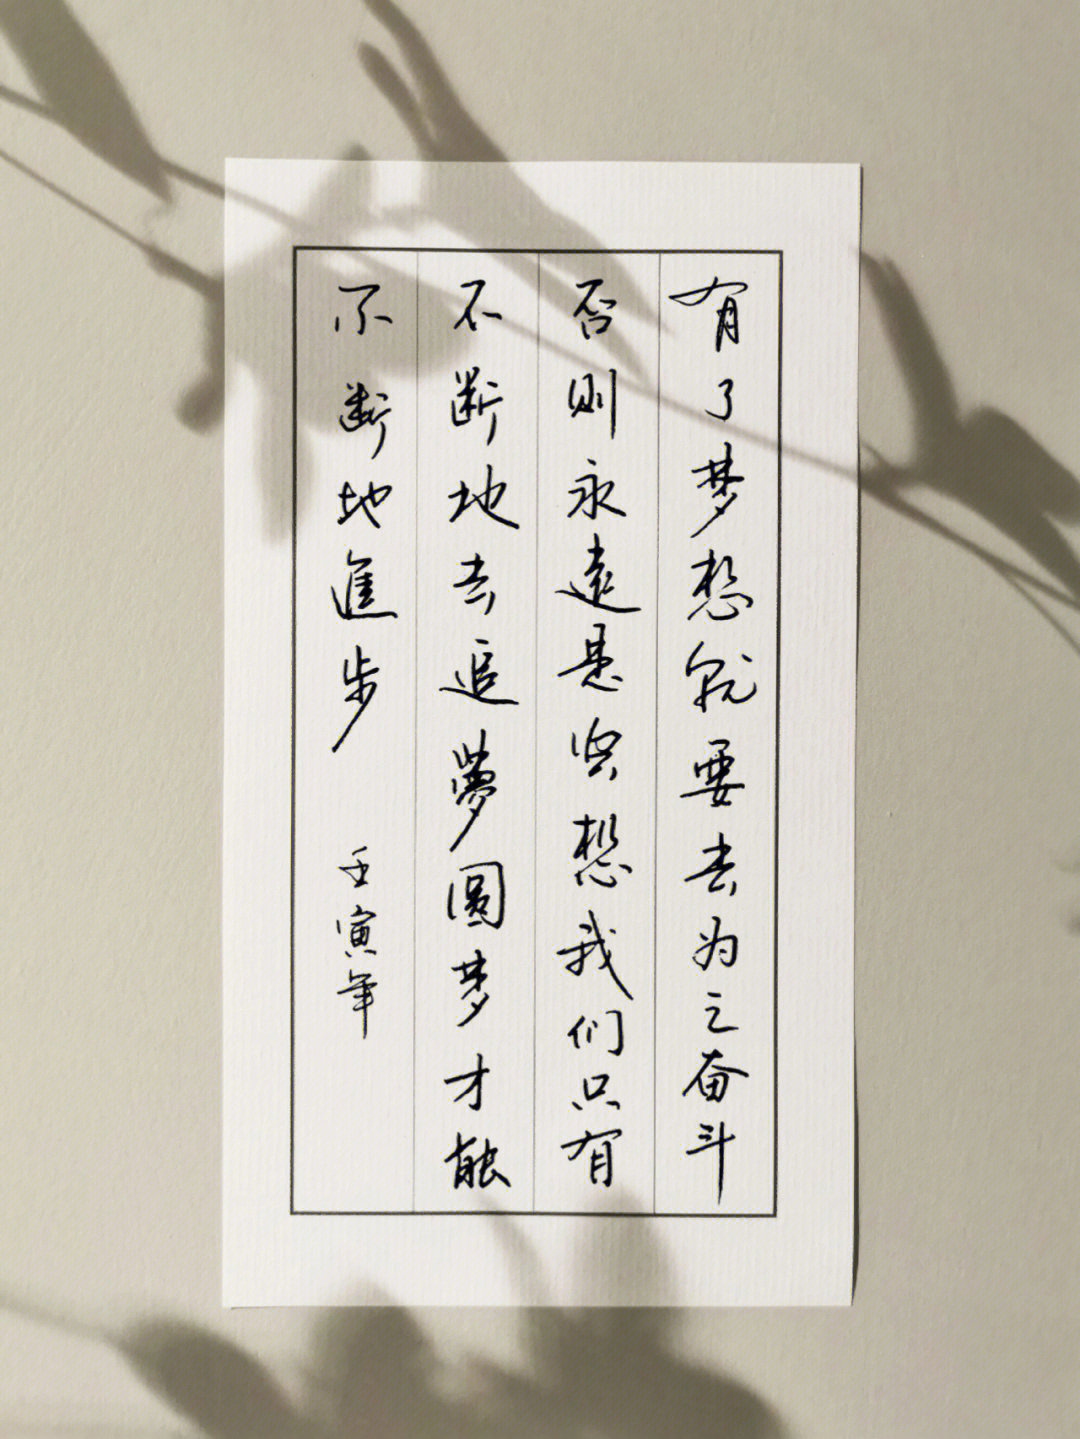 有了梦想就要去为之奋斗
否则永遠是空想我们只有
不断地去追夢圆梦才能
不断地進步
壬寅年